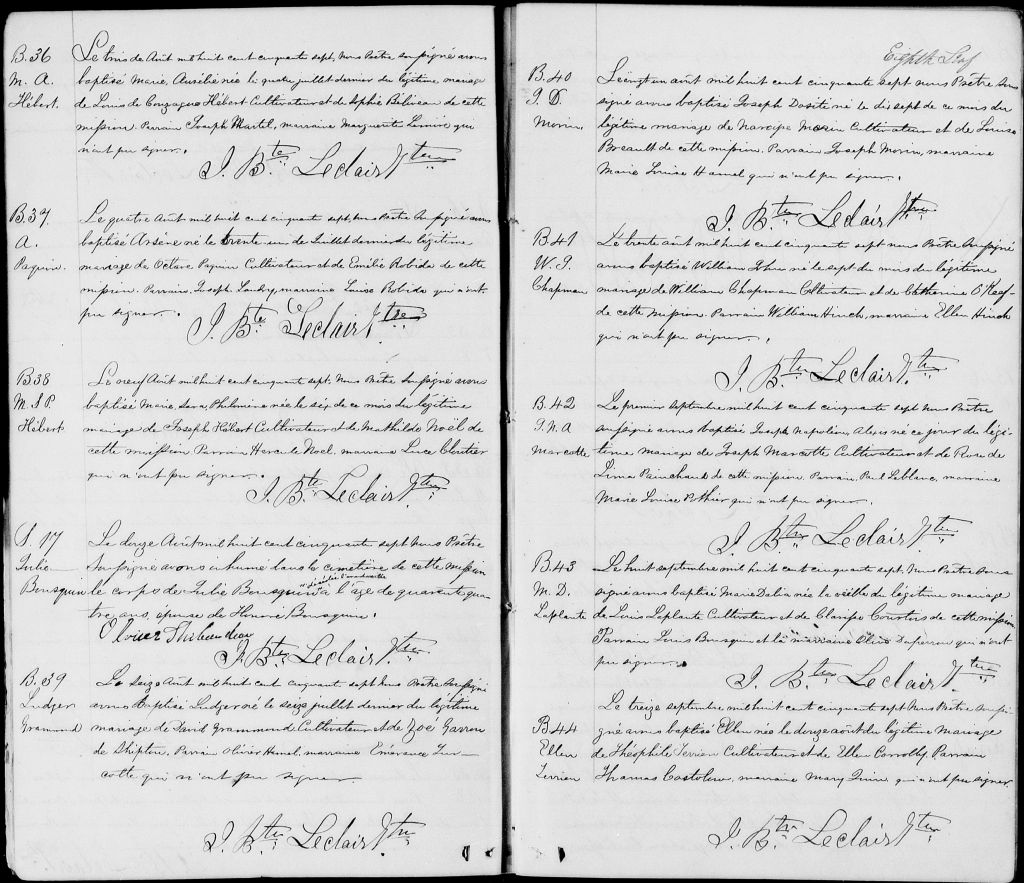 B.36
M. A.
Hébert.
Le trois de Août mil huit cent cinquante sept, Nous Prêtre Soussigné avons
baptisé Marie, Aurélie née le quatre juillet dernier du légitime, mariage
de Louis de Conzague Hébert Cultivateur et de Sophie Béliveau de cette
mission. Parrain Joseph Martel, marraine Marguerite Lemire qui
n'ont pu signer.
J. Bte Leclair Ptre
B.37
A.
Paquin.
Le quatre Août mil huit cent cinquante sept, nous Prêtre Soussigné avons
baptisé Arsène né le trente un de Juillet dernier du légitime
mariage de Octave Paquin Cultivateur et de Emélie Robida de cette
mission. Parrain, Joseph Landry, marraine Louise Robida qui n'ont
pu signer.
J. Bte Leclair Ptre
B38
M. S P.
Hébert
Le neuf Août mil huit cent cinquante sept. Nous Prêtre Soussigné avons
baptisé Marie, Philmine née le six de ce mois du légitime
mariage de Joseph Hébert Cultivateur et de Mathilde Noël de
cette mission Parrain Hercule Noel, marraine Luce Cloutier
qui n'ont pu signer.
J. Bte Leclair Ptre
S. 17
Julie
Bousquin
Le douze Août mil huit cent cinquante sept Nous Prêtre
Soussigné avons inhumé dans le cemetière de cette mission
le corps de Julie Bousquin à l'âge de quarente qua
tre, ans, épouse de Honoré Bousquin.
Olivier Thibaudeau
J. Bte Leclair Ptre
B.39
Ludger
Grammond
Le Seize Août mil huit cent cinquante sept Nous Prêtre Soussigné
avons Baptisé Ludger né le seize juillet dernier du légitime
mariage de David Grammond Cultivateur et de Zoé Garron
de Shipton, Parrain Olivier Hamel, marraine Emérance Tur-
cotte qui n'ont pu signer
J. Bte Leclair Ptre
Eighth Leaf
B.40
J. D.
Morin,
Le vingt un août mil huit cent cinquante sept nous Prêtre Sous
signé avons baptisé Joseph Dosite né le dix sept de ce mois du
légitime mariage de Narcisse Morin Cultivateur et de Louise
Breault de cette mission. Parrain Joseph Morin, marraine
Marie Louise Hamel qui n'ont pu signer.
J. Bte Leclair Ptre
B.41
W. J.
Chapman
Le trente août mil huit cent cinquante sept nous Prêtre Soussigné
avons baptisé William John né le sept du mois du légitime
mariage de William Chapman Cultivateur et de Catherine O'Keef-
de cette mission Parrain William Hinch, marraine Ellen Hinch
qui n'ont pu signer.
J. Bte Leclair Ptre
B.42
J. N. A
Marcotte
Le premier septembre mil huit cent cinquante sept Nous Prêtre
soussigné avons baptisé Joseph Napoléon, Alexis né ce jour du légi-
time mariage de Joseph Marcotte Cultivateur et de Rose de
Lima Painchaud de cette mission Parrain, Paul Leblanc, marraine
Marie Louise Pothier qui n'ont pu signer.
J. Btre Leclair Ptre
B.43
M. D.
Laplante
Le huit septembre mil huit cent cinquante sept, Nous Prêtre Sous
signé avons baptisé Marie Dalia née la veille du légitime mariage
de Louis Laplante Cultivateur et de Clarisse Courtois de cette mission
Parrain Louis Bousquin et la marraine Olive Duperron qui n'ont
pu signer.
J. Bte Leclair Ptre
B.44
Ellen
Terrien
Le treize septembre mil huit cent cinquante sept Nous Prêtre Soussi-
gné avons baptisé Ellen née le douze août du légitime Mariage
de Théophile Terrien Cultivateur et de Ellen Connolly, Parrain
Thomas Costolow, marraine Mary Quinn qui n'ont pu signer
J. Bte Leclair Ptre